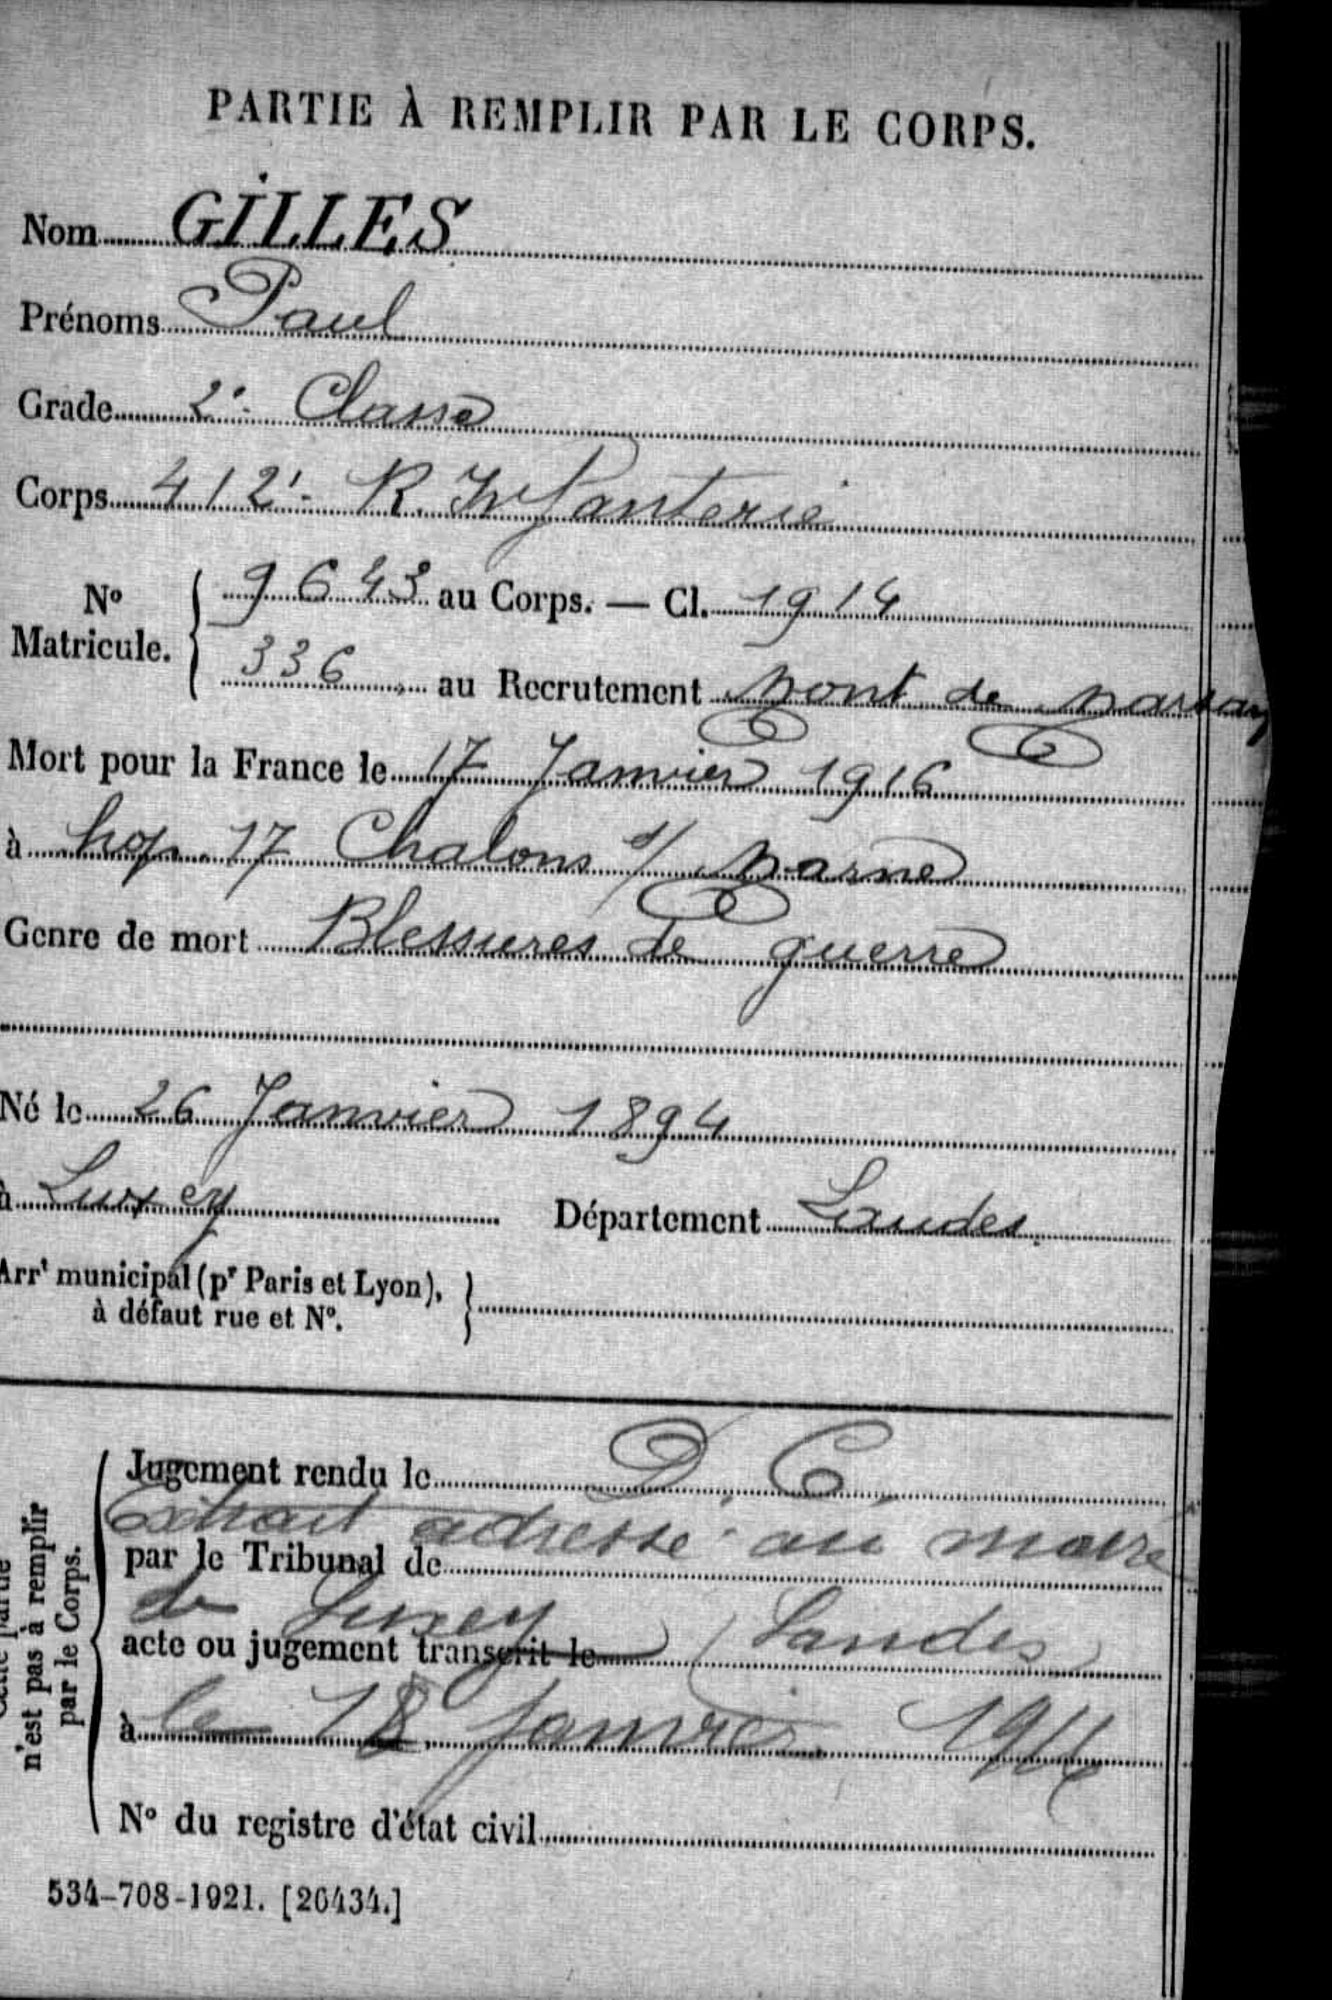 PARTIE À REMPLIR PAR LE CORPS.
Nom GILLES
Prénoms Paul
Grade 2e Classe
Corps 412e R. Infanterie
No Matricule. 9643 au Corps. — Cl. 1914
336 au Recrutement Mont de Marsan
Mort pour la France le 17 Janvier 1916
à hop. 17 Chalons s/ Marne
Genre de mort Blessures de guerre
Né le 26 Janvier 1894
à Luxey Département Landes.
Arrt municipal (pr Paris et Lyon),
à défaut rue et No.
n'est pas à remplir
par le Corps.
Jugement rendu le D. C.
Extrait adressé au maire
par le Tribunal de
de Luxey (Landes)
acte ou jugement transcrit le
à le 18 janvier 1916
No du registre d'état civil
534-708-1921. [26434.]